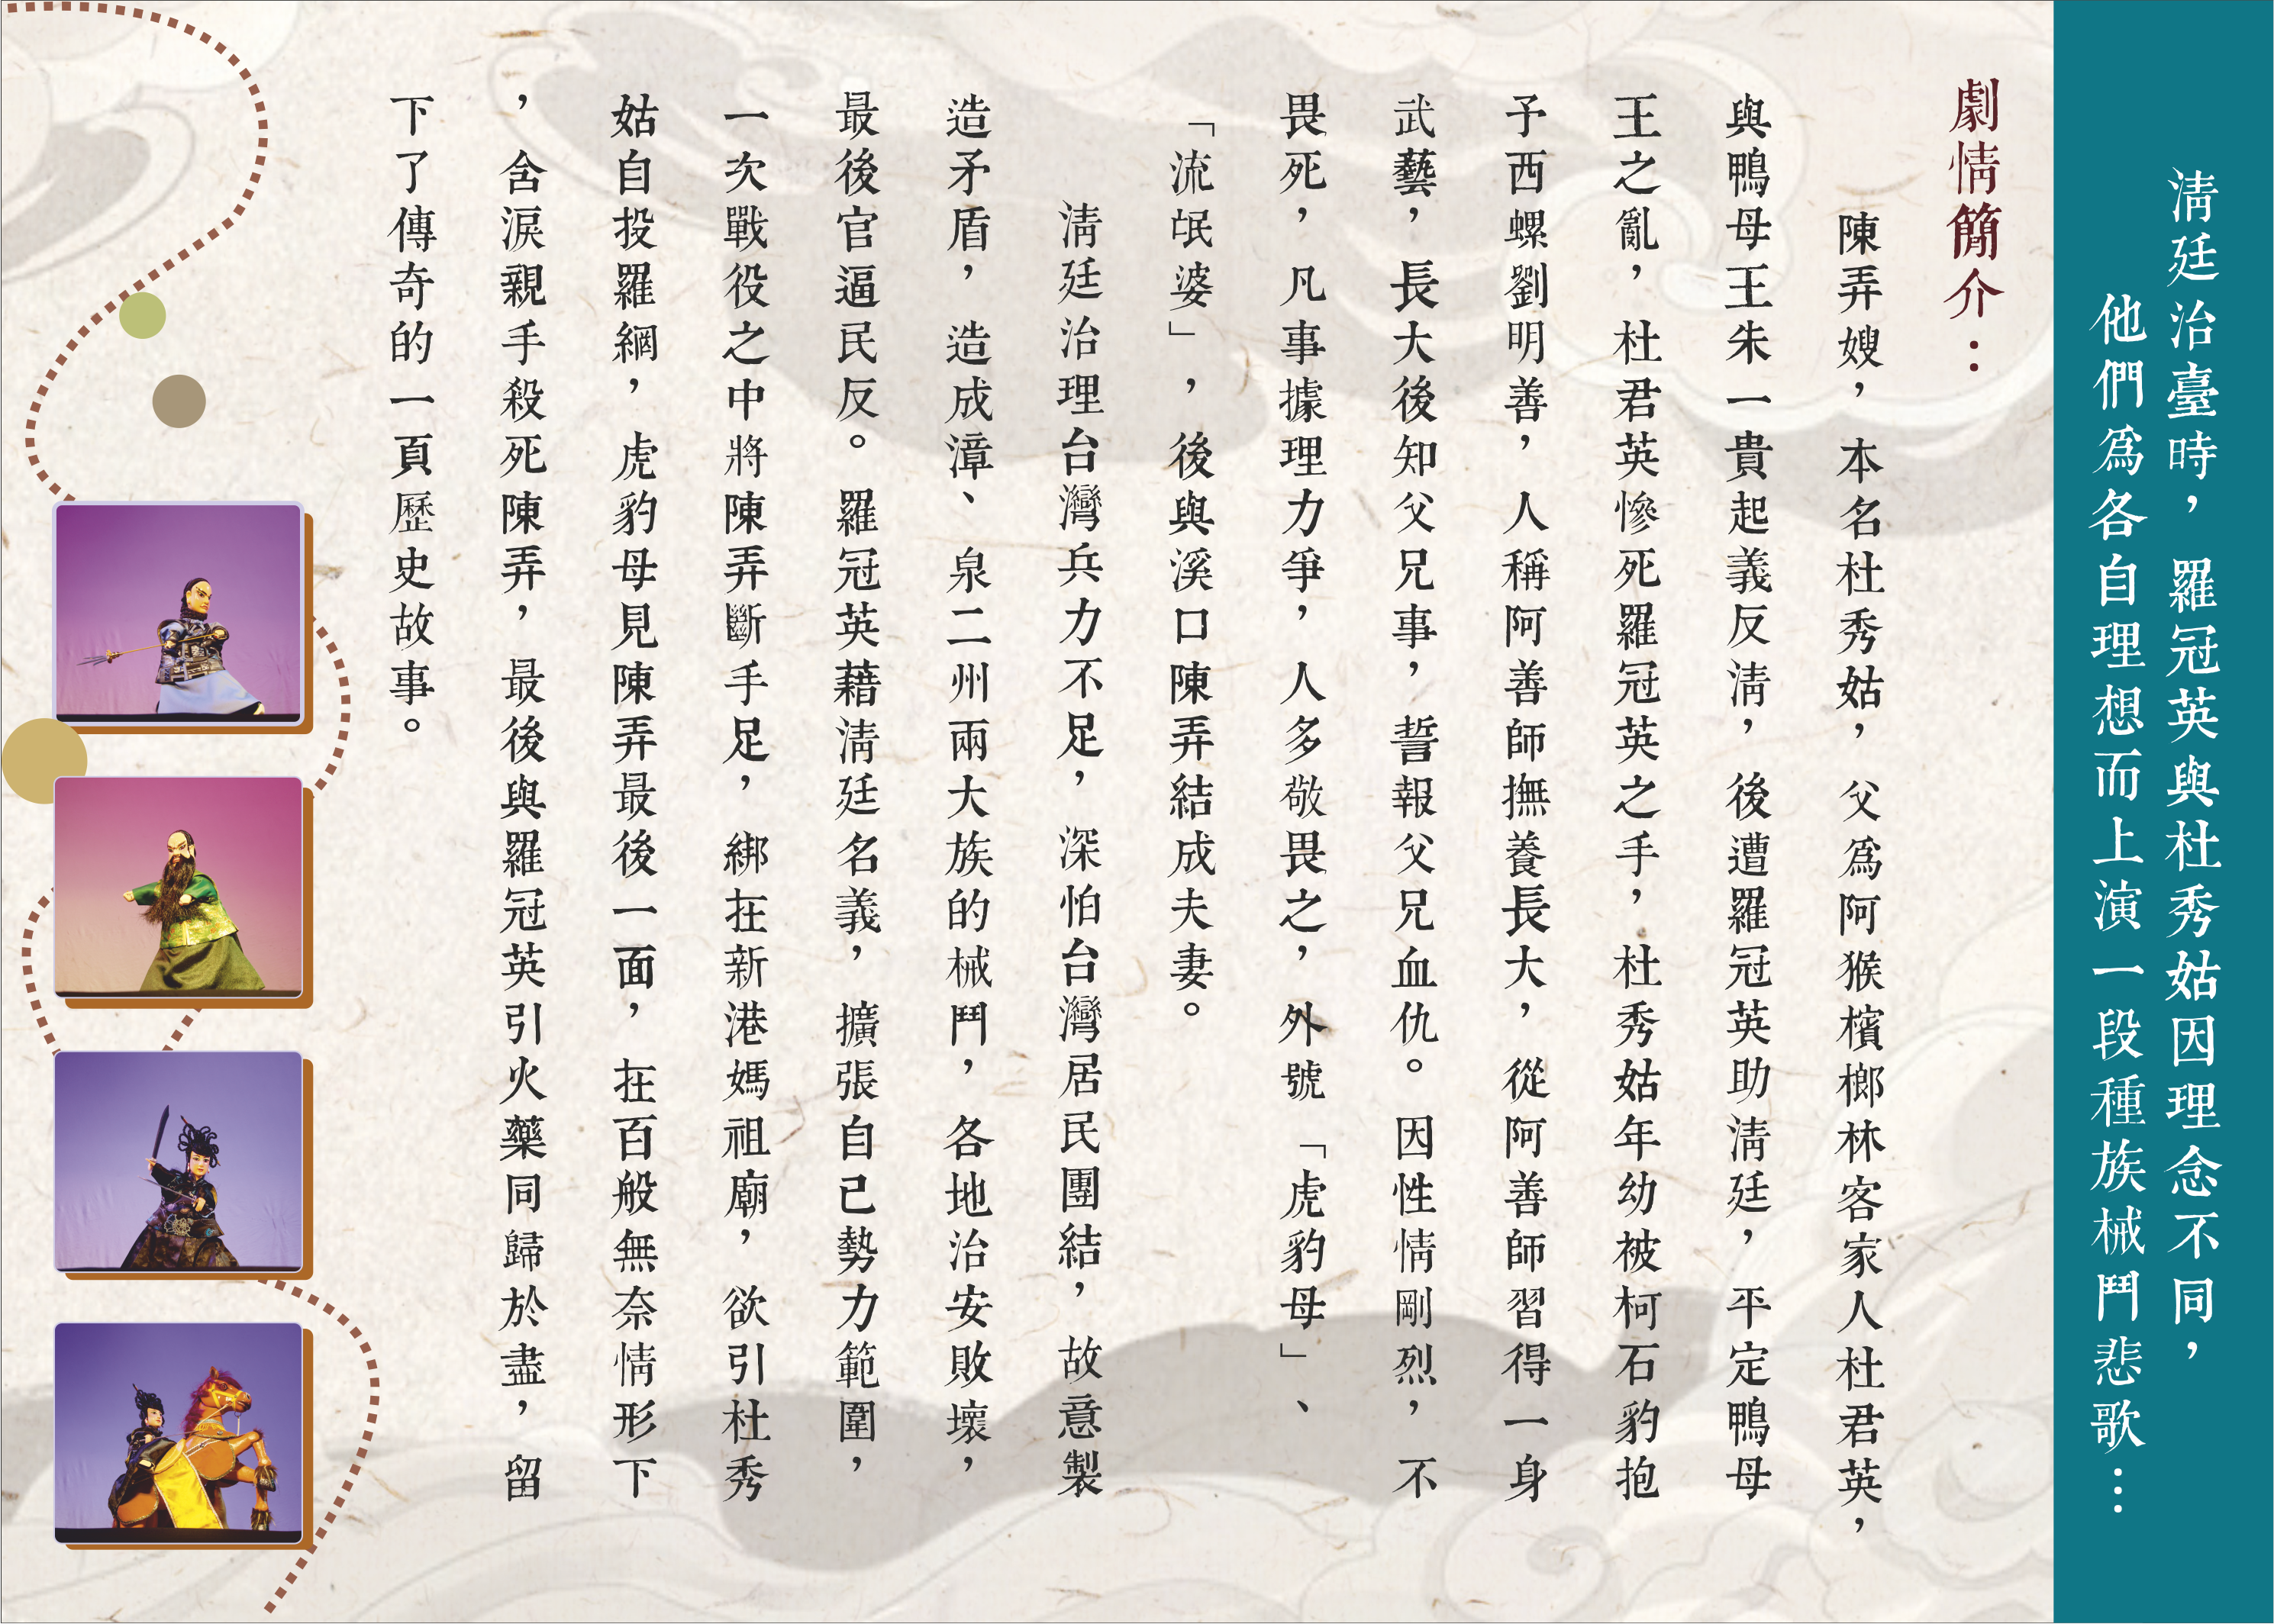 清廷治臺時，羅冠英與杜秀姑因理念不同，
他們為各自理想而上演一段種族械鬥悲歌…
劇情簡介：
陳弄嫂，本名杜秀姑，父為阿猴檳榔林客家人杜君英，
與鴨母王朱一貴起義反清，後遭羅冠英助清廷，平定鴨母
王之亂，杜君英慘死羅冠英之手，杜秀姑年幼被柯石豹抱
予西螺劉明善，人稱阿善師撫養長大，從阿善師習得一身
武藝，長大後知父兄事，誓報父兄血仇。因性情剛烈，不
畏死，凡事據理力爭，人多敬畏之，外號「虎豹母」、
「流氓婆」，後與溪口陳弄結成夫妻。
清廷治理台灣兵力不足，深怕台灣居民團結，故意製
造矛盾，造成漳、泉二州兩大族的械鬥，各地治安敗壞，
最後官逼民反。羅冠英藉清廷名義，擴張自己勢力範圍，
一次戰役之中將陳弄斷手足，綁在新港媽祖廟，欲引杜秀
姑自投羅網，虎豹母見陳弄最後一面，在百般無奈情形下
，含淚親手殺死陳弄，最後與羅冠英引火藥同歸於盡，留
下了傳奇的一頁歷史故事。